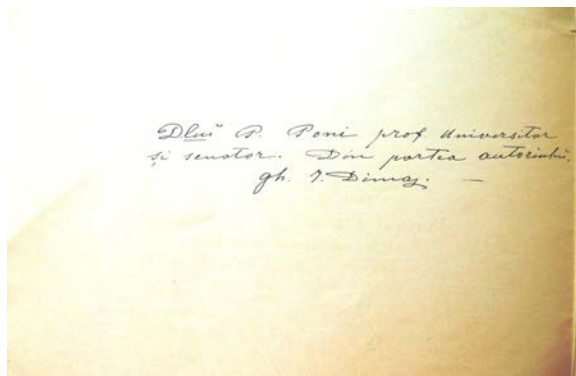 Dlui P. Poni prof. Universitar
și senator. Din partea autorului.
gh. I. Dimaș. —